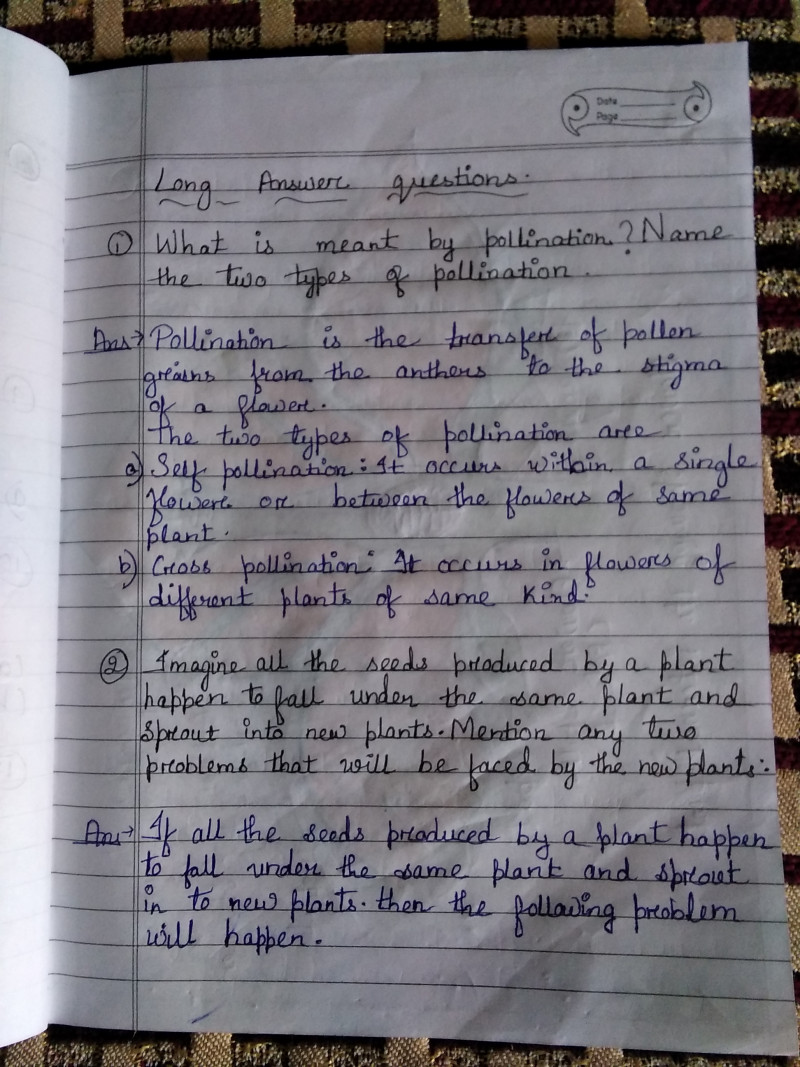 Date
Page
Long Answer questions.
① What is meant by pollination? Name
the two types of pollination.
Ans→ Pollination is the transfer of pollen
grains from the anthers to the stigma
of a flower.
The two types of pollination are
a) Self pollination: It occurs within a single
flower or between the flowers of same
plant.
b) Cross pollination: It occurs in flowers of
different plants of same kind.
② Imagine all the seeds produced by a plant
happen to fall under the same plant and
sprout into new plants. Mention any two
problems that will be faced by the new plants:
Ans→ If all the seeds produced by a plant happen
to fall under the same plant and sprout
in to new plants. then the following problem
will happen.